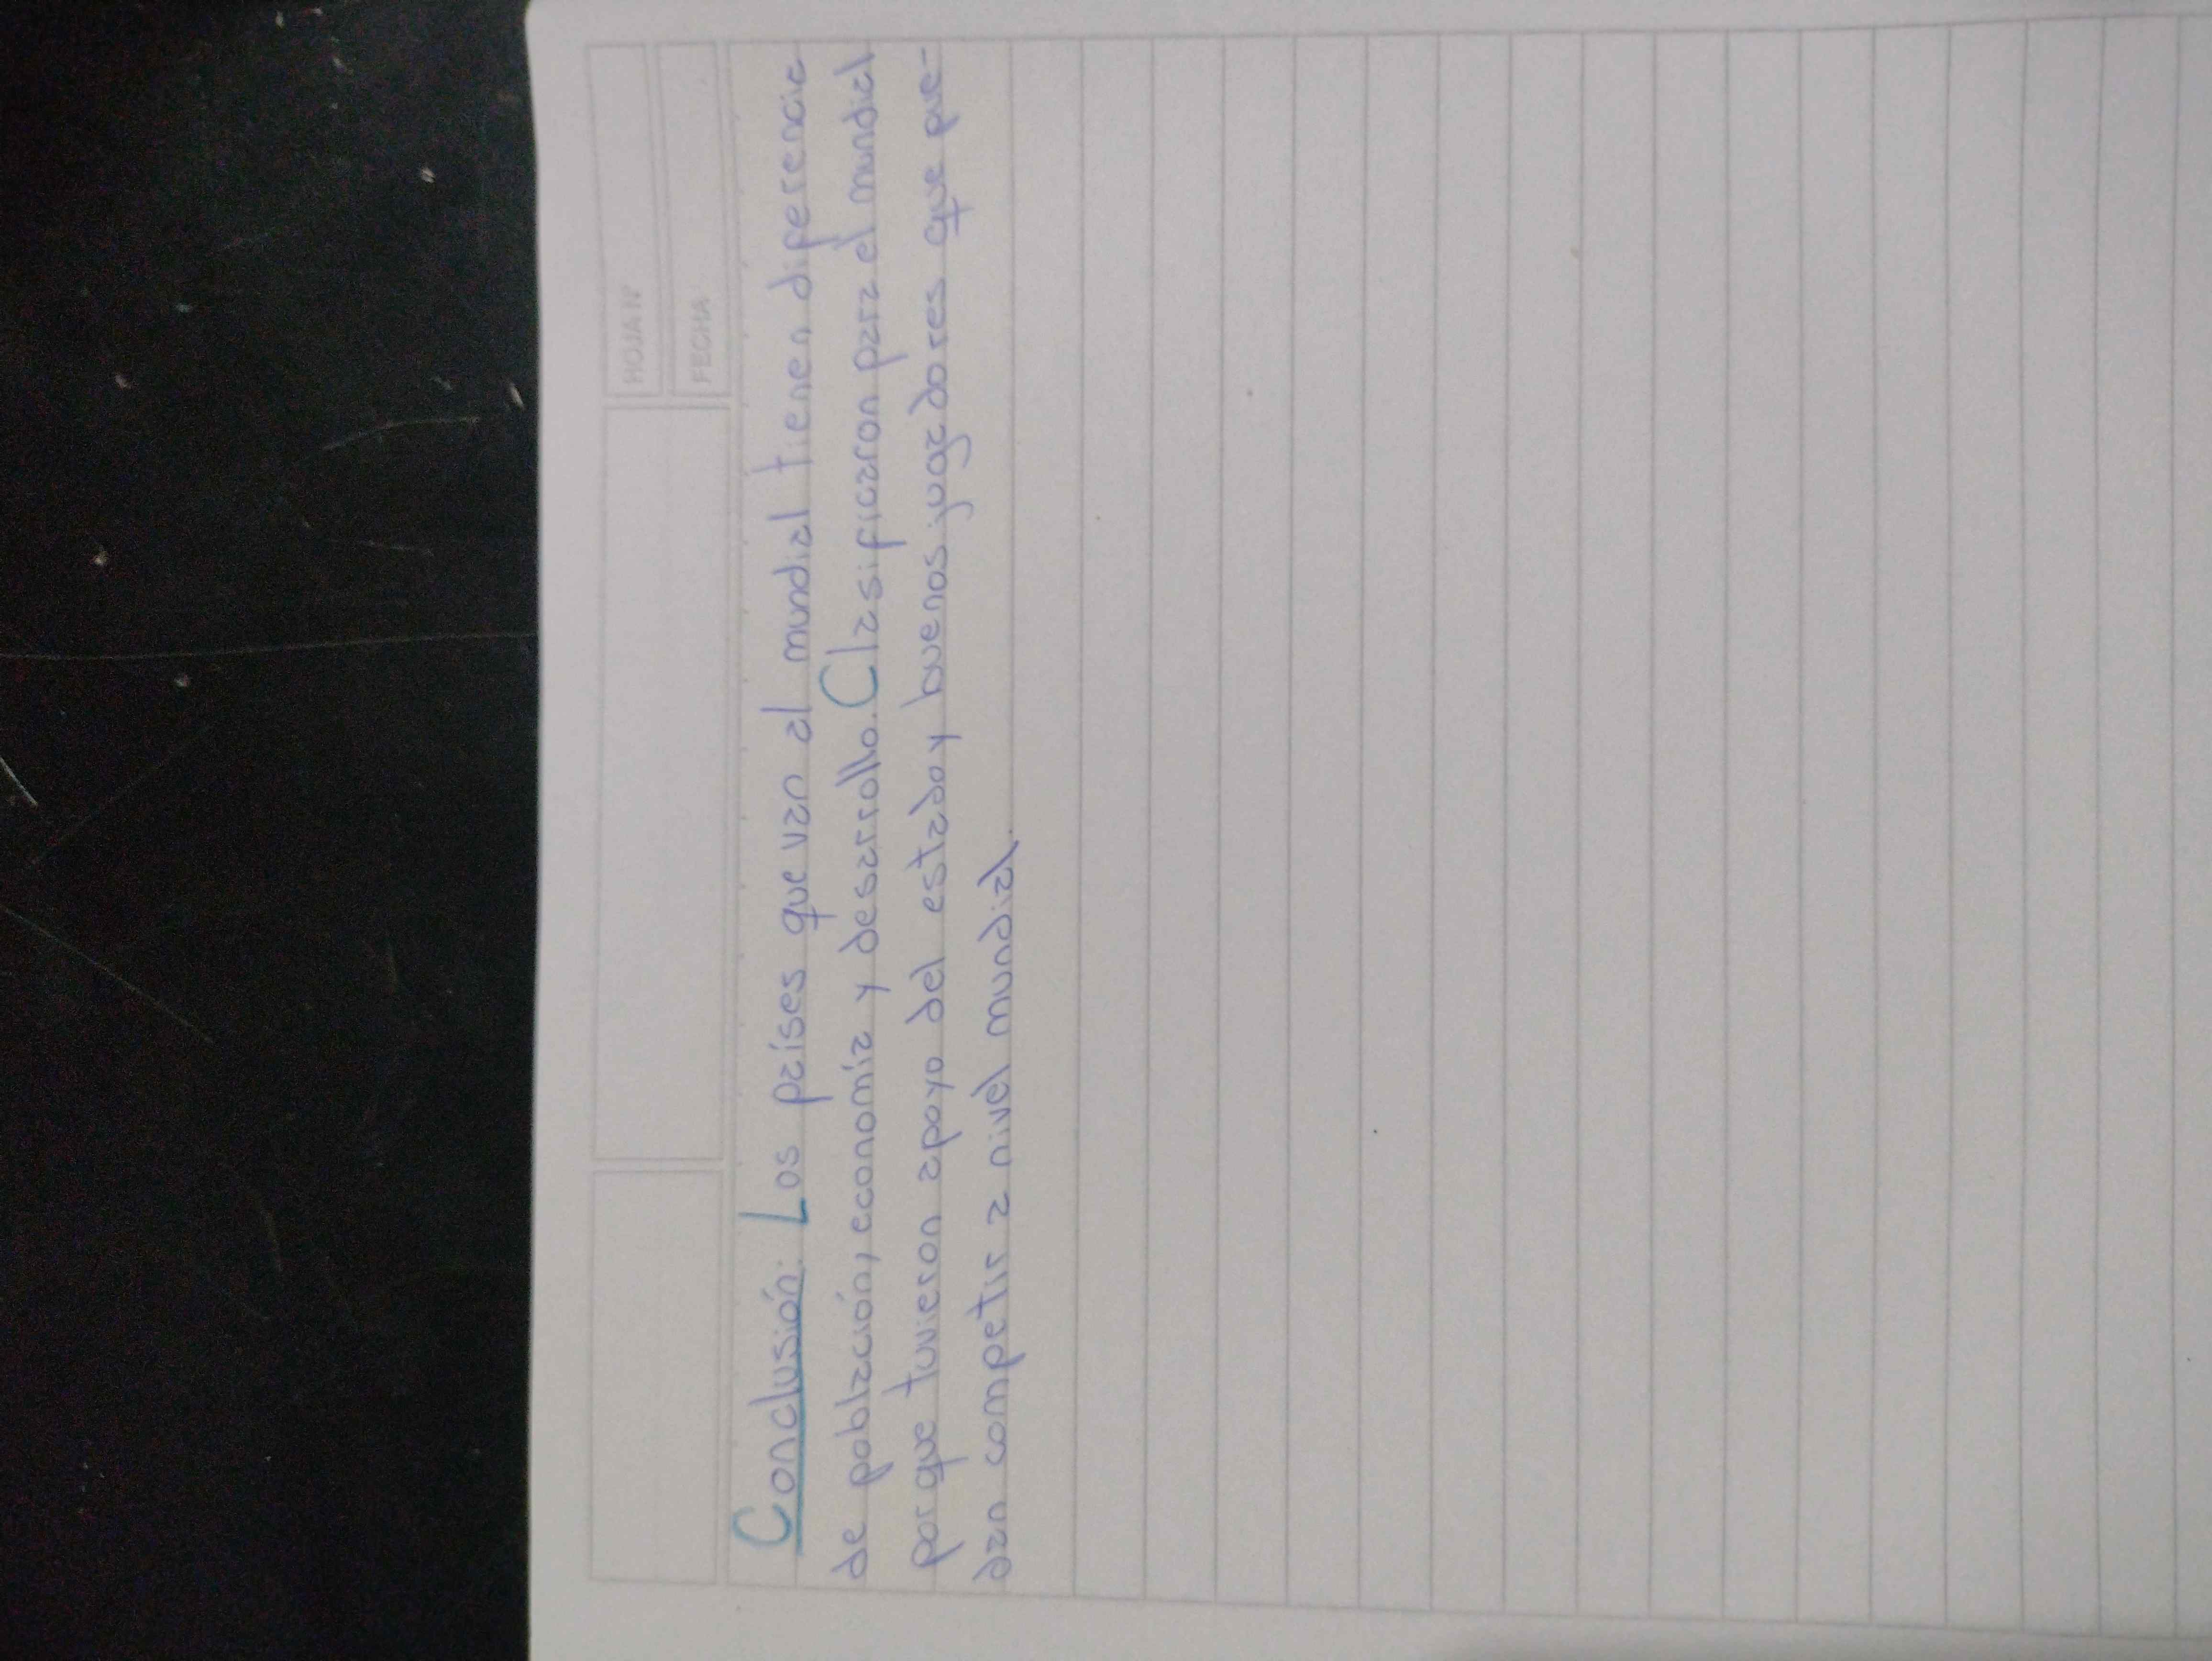 HOJA Nº
FECHA
Conclusión: Los países que van al mundial tienen diferencia
de población, economía y desarrollo. Clasificaron para el mundial
porque tuvieron apoyo del estado y buenos jugadores que pue-
dan competir a nivel mundial.